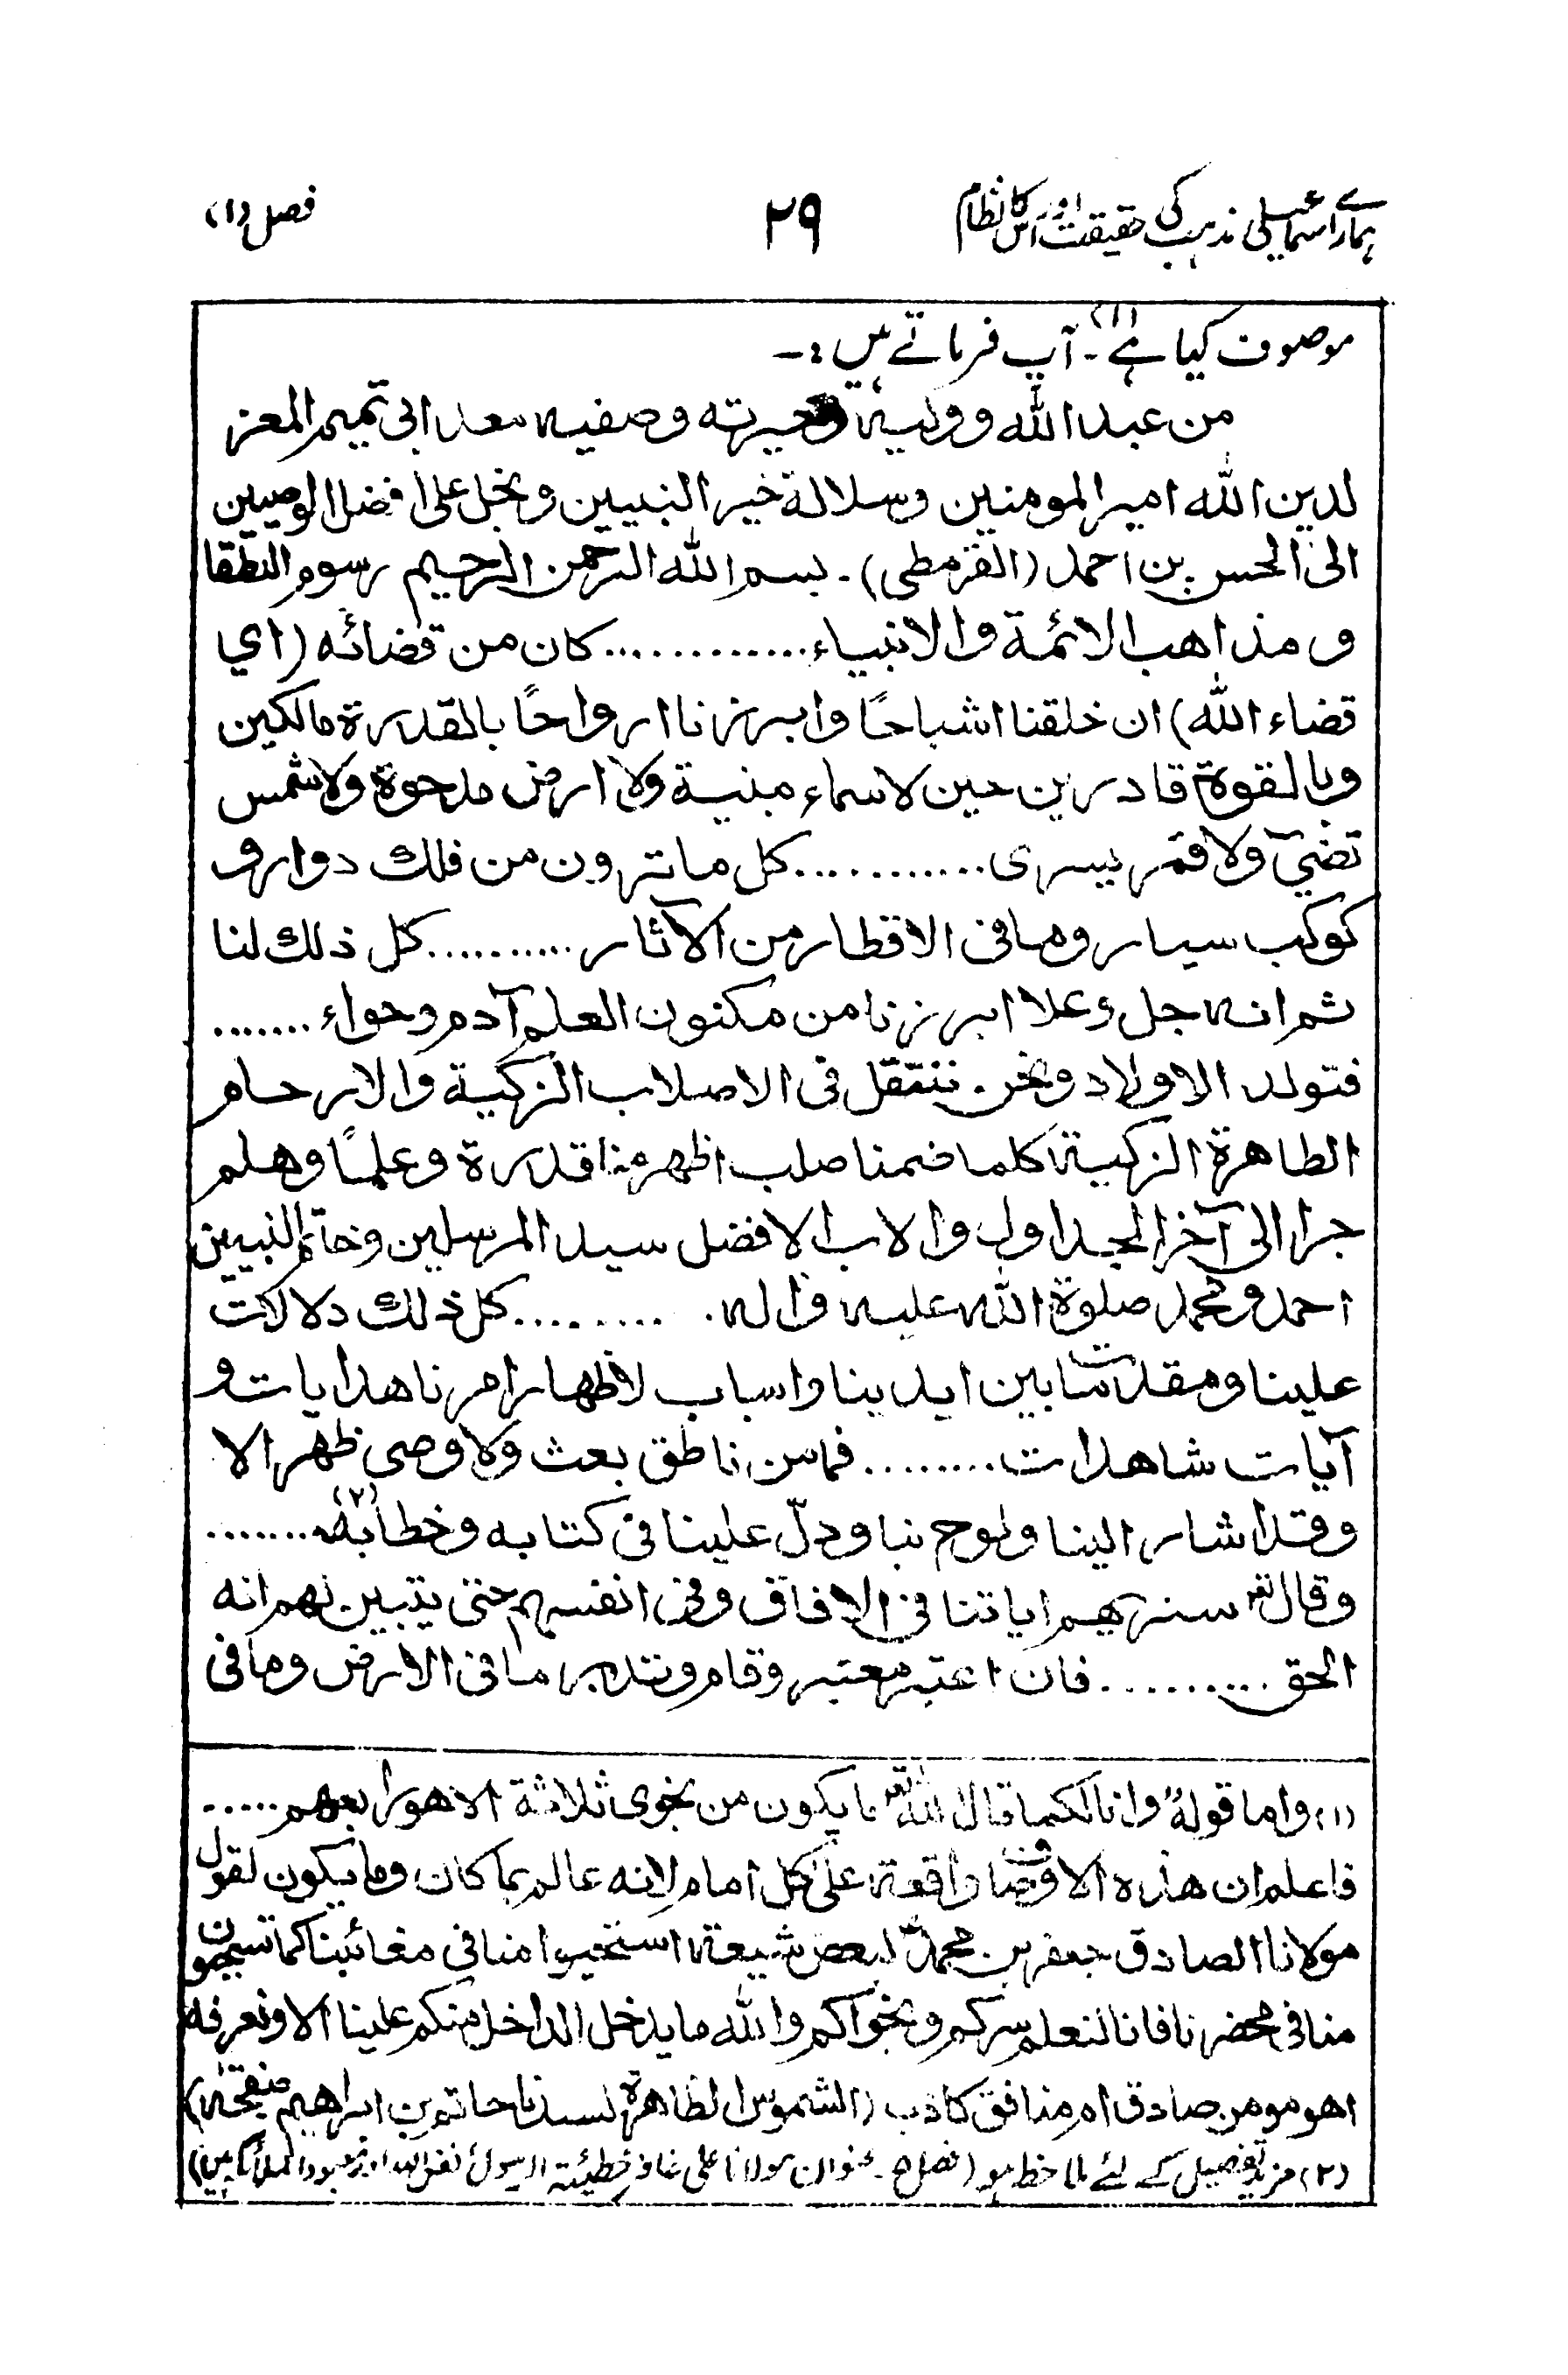 ہمارے اسماعیلی مذہب کی حقیقت اور اس کا نظام ۲۹ فصل (۱)
موصوف کیا ہے(۱)۔ آپ فرماتے ہیں :۔
من عبد الله ووليه وخيرته وصفيه معد ابی تميم المعز
لدين الله امير المومنين وسلالة خير النبيين ونجل على افضل الوصيين
الى الحسن بن احمد (القرمطى)۔ بسم الله الرحمن الرحيم رسوم النطقا
و مذاهب الائمة والانبياء ............ كان من قضائه (اي
قضاء الله) ان خلقنا اشباحًا وابرزنا ارواحًا بالقدرة مالكين
وبالقوة قادرين حين لاسماء مبنية ولا ارض مدحوة ولا شمس
تضئ ولا قمر يسرى ............ كل ما ترون من فلك دوار و
كوكب سيار وما فى الاقطار من الآثار .......... كل ذلك لنا
ثم انه جل وعلا ابرزنا من مكنون العلم آدم وحواء .......
فتولد الاولاد ونحن ننتقل فى الاصلاب الزكية والارحام
الطاهرة الزكية كلما ضمنا صلب اظهر منا قدرة وعلمًا وهلم
جرا الى آخر الجد الاول والاب الافضل سيد المرسلين وخاتم النبيين
احمد ومحمد صلوة الله عليه واله. ......... كل ذلك دلالات
علينا ومقدمات بين ايدينا واسباب لاظهار امرنا هدايات و
آيات شاهدات ......... فما من ناطق بعث ولا وصى ظهر الا
وقد اشار الينا ولوح بنا ودلّ علينا فى كتابه وخطابه(۲) .......
وقال تع سنريهم اياتنا فى الافاق وفى انفسهم حتى يتبين لهم انه
الحق .......... فان اعتبر معتبر وقام وتدبر ما فى الارض وما فى
(۱) واما قوله وانا لكما قال الله تع ما يكون من نجوى ثلاثة الا هو رابعهم .....
فاعلم ان هذه الاوصاف واقعة على كل امام لانه عالم بما كان وما يكون لقول
مولانا الصادق جعفر بن محمد لبعض شيعته استحيوا منا فى مغائبنا كما تستحيون
منا فى محضرنا فانا لنعلم سركم ونجواكم والله ما يدخل الداخل منكم علينا الا ونعرفه
اهو مومن صادق ام منافق كاذب (الشموس الظاهرة لسيدنا حاتم بن ابراهيم)
(۲) مزید تفصیل کے لئے ملاحظہ ہو (فصل عنوان مولانا علی غافر خطیئة الرسول